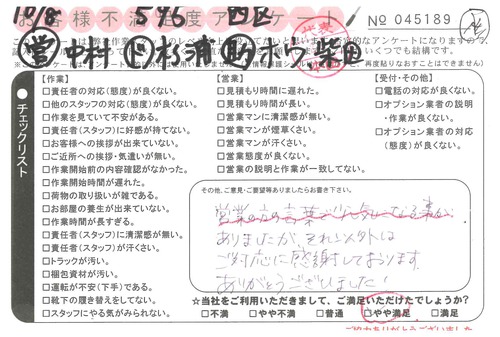 10/8 596 西区
お客様不満足度アンケート
No 045189
営 中村 杉浦 柴田
チェックリスト
【作業】
□責任者の対応(態度)が良くない。
□他のスタッフの対応(態度)が良くない。
□作業を見ていて不安がある。
□責任者(スタッフ)に好感が持てない。
□お客様への挨拶が出来ていない。
□ご近所への挨拶・気遣いが無い。
□作業開始前の内容確認がなかった。
□作業開始時間が遅れた。
□荷物の取り扱いが雑である。
□お部屋の養生が出来ていない。
□作業時間が長すぎる。
□責任者(スタッフ)に清潔感が無い。
□責任者(スタッフ)が汗くさい。
□トラックが汚い。
□梱包資材が汚い。
□運転が不安(下手)である。
□靴下の履き替えをしてない。
□スタッフにやる気がみられない。
【営業】
□見積もり時間に遅れた。
□見積もり時間が長い。
□営業マンに清潔感が無い。
□営業マンが煙草くさい。
□営業マンが汗くさい。
□営業態度が良くない。
□営業の説明と作業が一致してない。
【受付・その他】
□電話の対応が良くない。
□オプション業者の説明
・作業が良くない。
□オプション業者の対応
(態度)が良くない。
その他、ご意見・ご要望等ありましたらお書き下さい。
営業の方の言葉で少し気になる事が
ありましたが、それ以外は
ご対応に感謝しております。
ありがとうございました!
☆当社をご利用いただきまして、ご満足いただけたでしょうか?
□不満 □やや不満 □普通 □やや満足 □満足
ご協力ありがとうございました